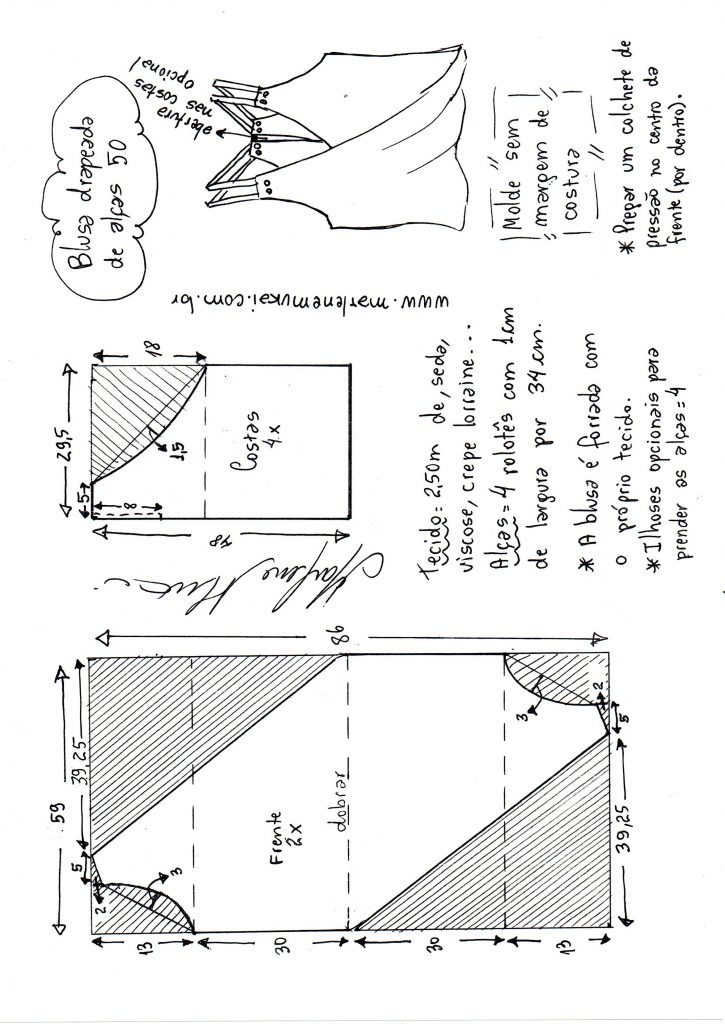 Blusa drapeada
de alças 50
abertura
nas costas
opcional
Molde sem
margem de
costura
* Prepar um colchete de
pressão no centro da
frente (por dentro).
www.marlenemukai.com.br
29,5
5
8
18
1,5
48
Costas
4x
Tecido = 2,50m de, seda,
viscose, crepe lorraine...
Alças = 4 rolotês com 1cm
de largura por 34 cm.
* A blusa é forrada com
o próprio tecido.
* Ilhoses opcionais para
prender as alças = 4
59
39,25
5
2
3
13
30
30
13
86
Frente
2x
dobrar
3
2
5
39,25